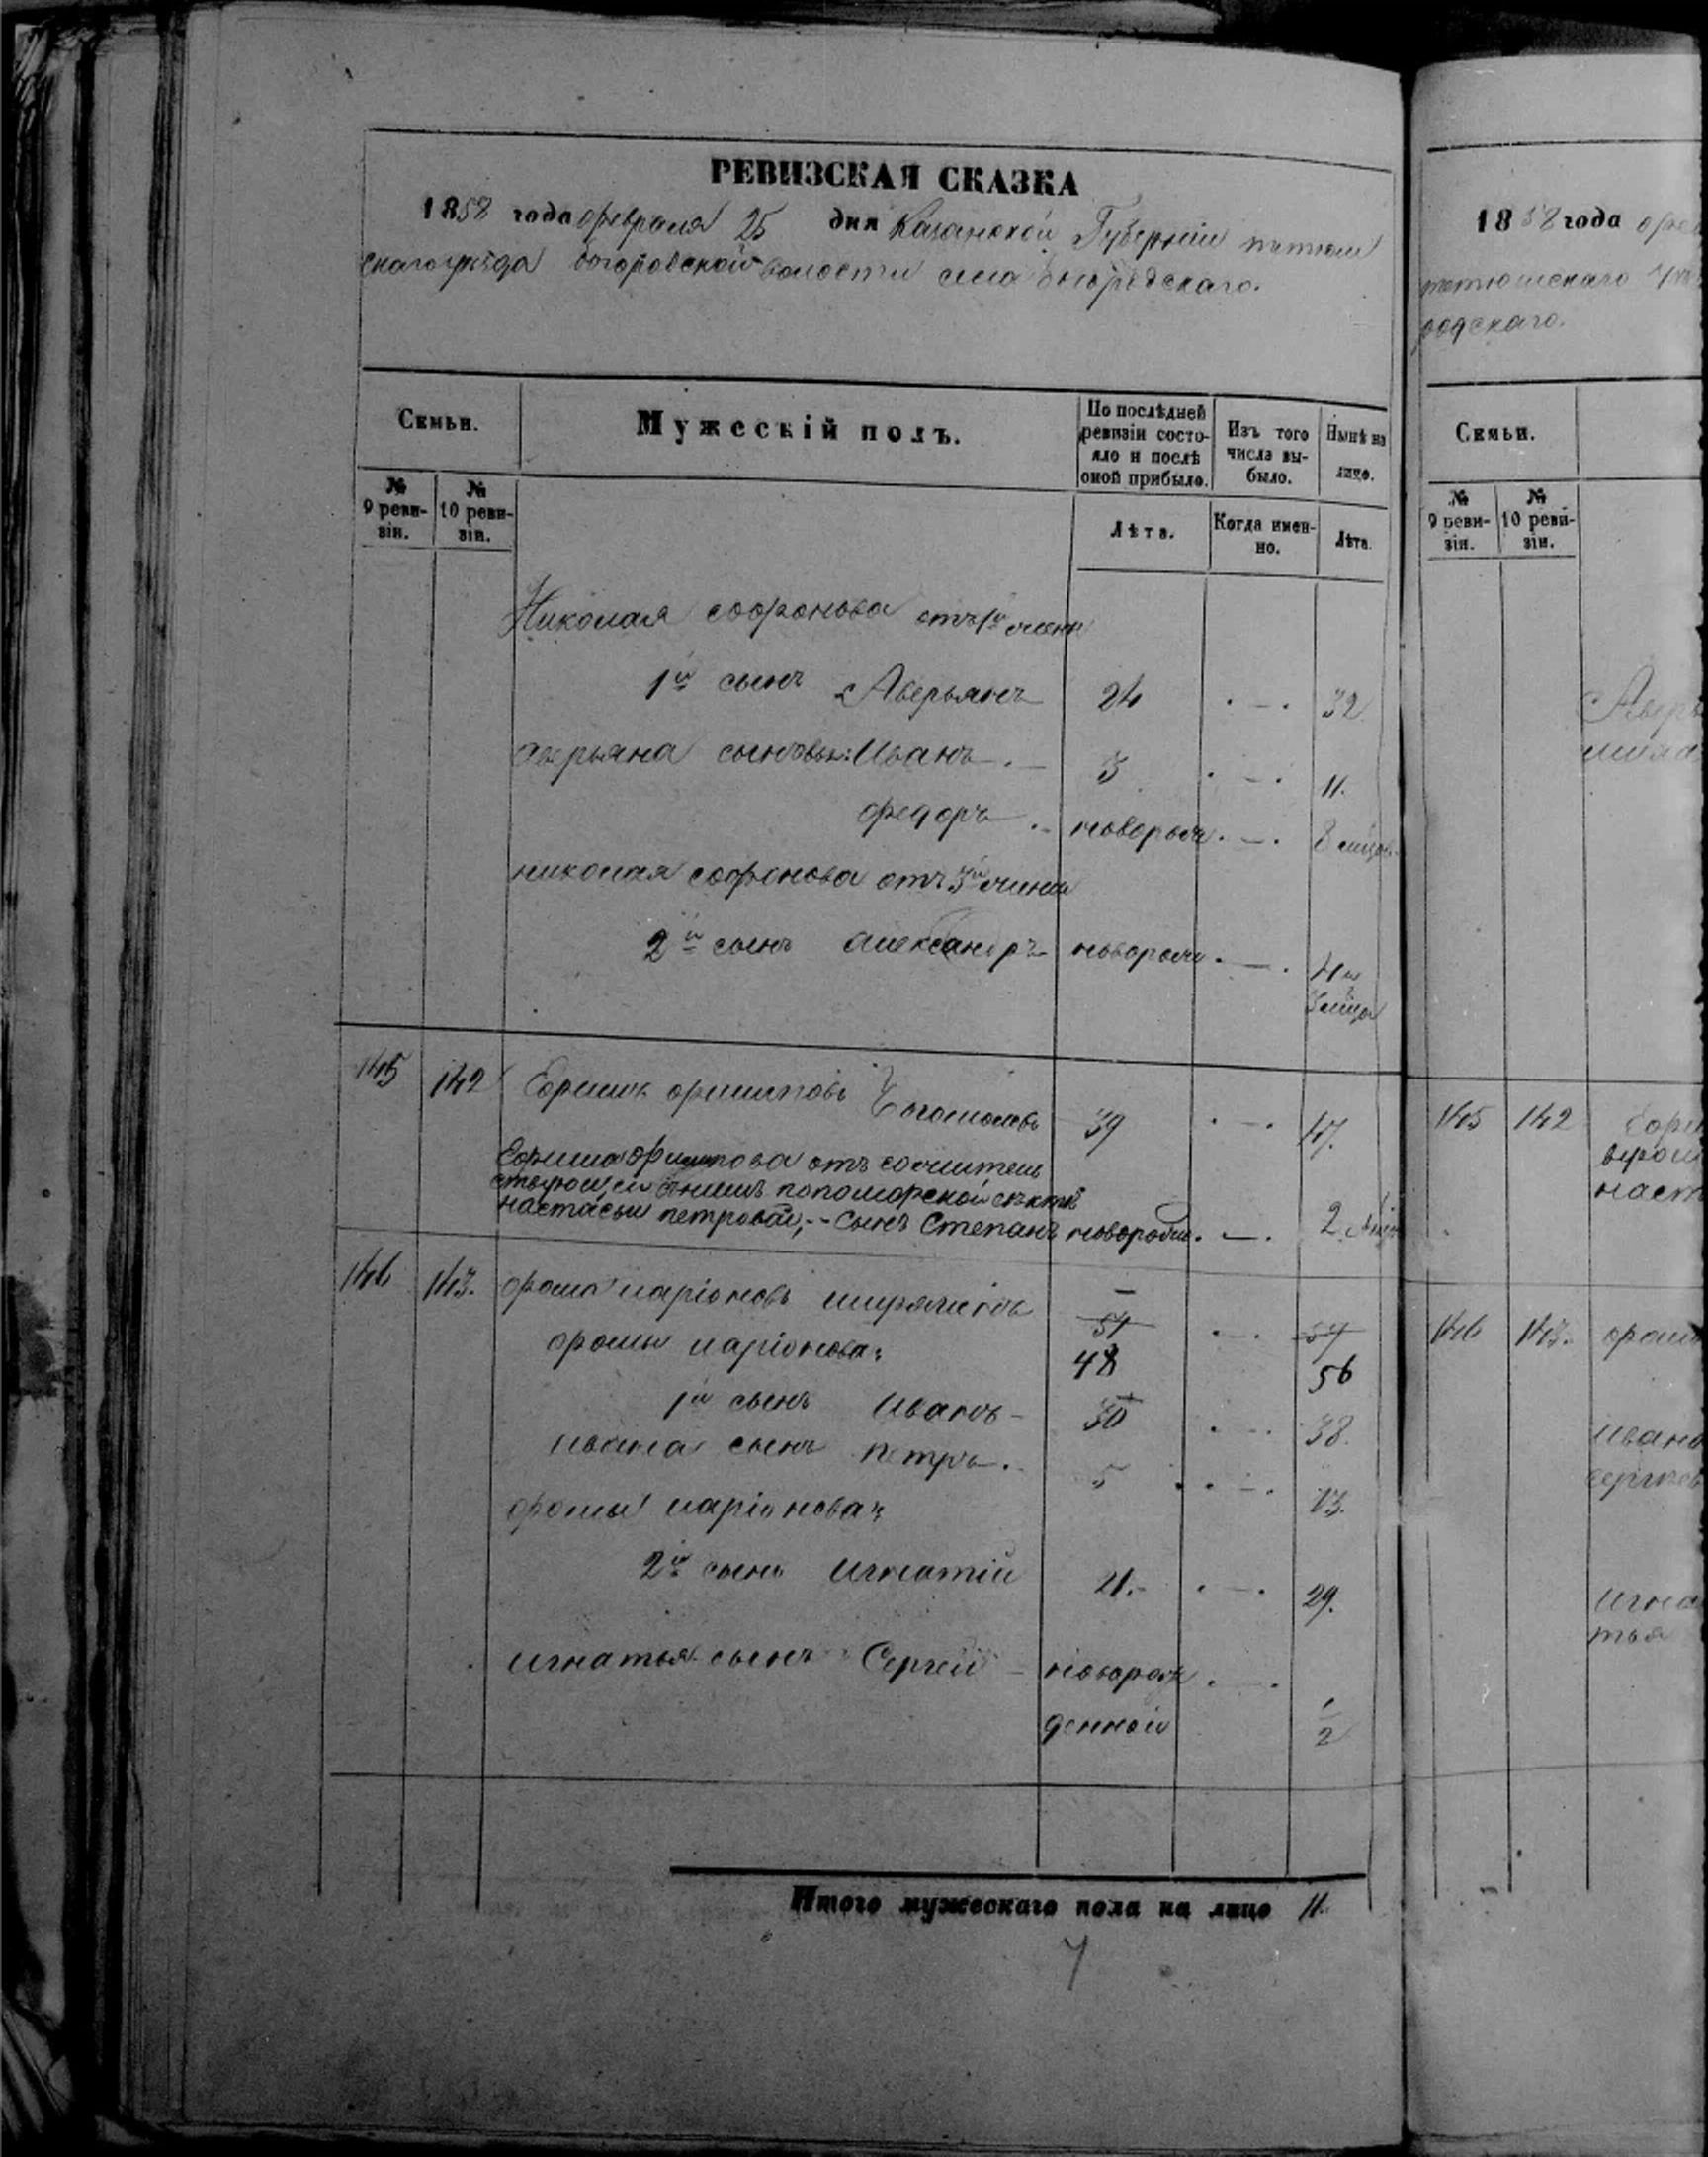 РЕВИЗСКАЯ СКАЗКА
1858 года февраля 25 дня Казанской Губерніи тетюш
скаго уѣзда богоровской волости села Богородскаго.
Семьи.
Мужескій полъ.
По послѣдней ревизіи состояло и послѣ оной прибыло.
Изъ того числа выбыло.
Нынѣ на лицо.
№ 9 ревизіи.
№ 10 ревизіи.
Лѣта.
Когда именно.
Лѣта.
Николая софронова отъ 1й жены
1й сынъ Аверьянъ 24 . — . 32
аверьяна сыновья: Иванъ . — 3 . — . 11.
федоръ . - новорож . — . 8
николая софронова отъ 3й жены
2й сынъ александръ новорож . — . 4 и
3 мѣсца
145 142 Ефимъ филиповъ Богомоловъ 39 . — . 47.
Ефима филипова отъ сожитель
ствующей съ нимъ по поморской сектѣ
настасьи петровой, -- Сынъ Степанъ новорожд . — . 2
146 143. фома ларіоновъ ширяновъ 54 . — . 54
фомы ларіонова: 48 56
1й сынъ Иванъ - 30 . — . 38.
ивана сынъ петръ . - 5 . — . 13.
фомы ларіонова:
2й сынъ Игнатій 21. - . — . 29.
игнатья сынъ Сергей - новорож . — .
денной 1/2
Итого мужескаго пола на лицо 11.
7
1858 года фев
тетюшскаго уѣз
родскаго.
Семьи.
№ 9 ревизіи.
№ 10 ревизіи.
Авер
145 142 Ефи
наст
146 143. фом
Ивана
сергѣев
Игна
тья